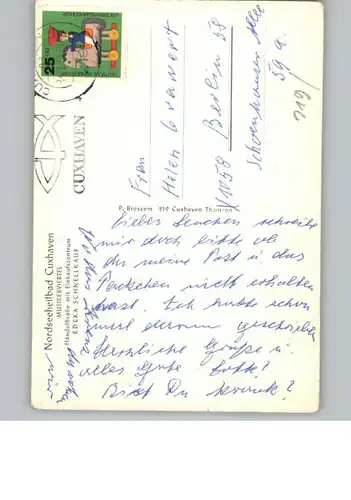 25
DEUTSCHE BUNDESPOST
CUXHAVEN
Frau
Helene
X 1058 Berlin 58
Schoenhauser Allee
59 a
219/
P. Bressem 219 Cuxhaven
Nordseeheilbad Cuxhaven
MUSIKERVIERTEL
Händelstraße mit Einkaufszentrum
EDEKA SCHNELLKAUF
Liebes Lenchen schreibe
mir doch bitte ob
du meine Post u das
Päckchen nicht erhalten
hast. Ich hatte schon
mal darum geschrieben
Herzliche Grüße u.
alles Gute
Bist Du krank?